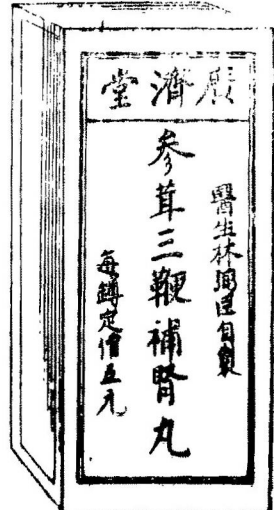 廣濟堂
醫生林弼臣自製
参茸三鞭補腎丸
每罇定價五元